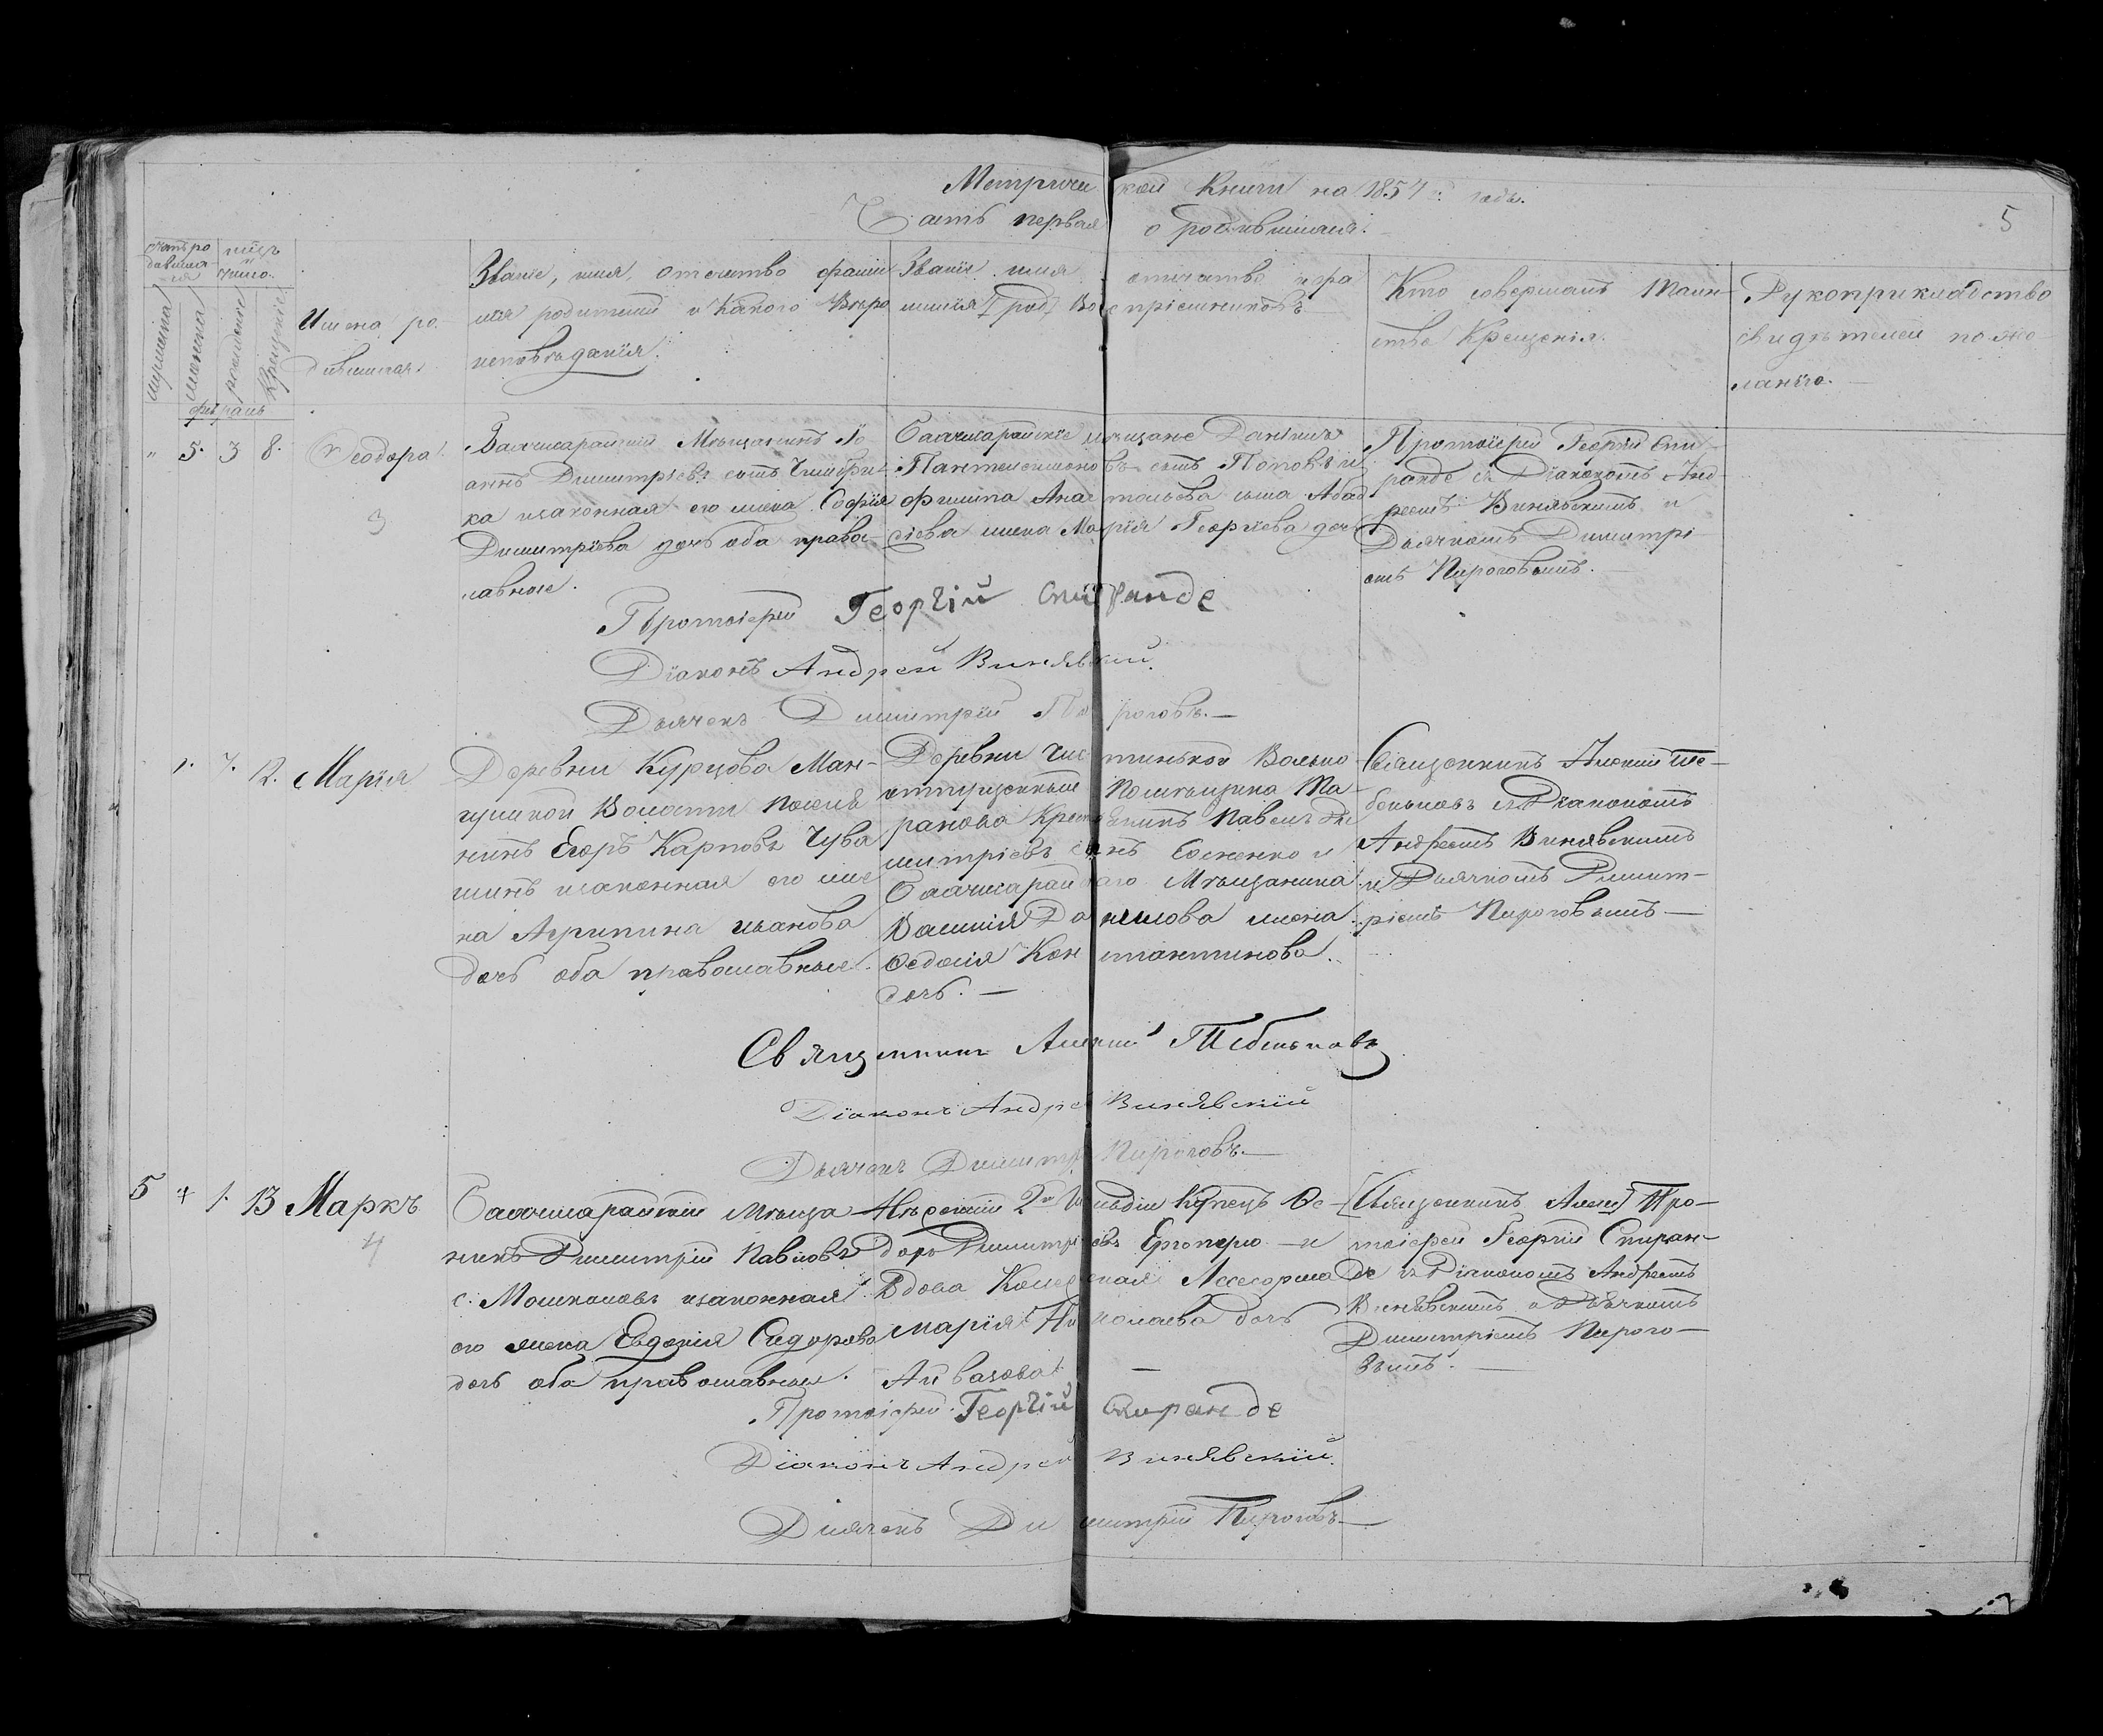 Метрической Книги на 1857: годъ.
Часть первая о родившихся.
5
Счетъ ро
дившихся
мѣсяцъ и число.
мужеска
женска
рожденіе
крещеніе
Имена ро-
дившихся.
Званіе, имя, отечество фами-
лія родителей и какого вѣро
исповѣданія.
Званіе имя отечество и фа
милія [род] Воспріемниковъ
Кто совершалъ Таин-
ство Крещенія.
Рукоприкладство
свидѣтелей по же-
ланію.
февраль
" 5. 3 8. Ѳеодора.
3
Бахчисарайскій Мѣщанинъ Іо
аннъ Димитріевъ сынъ
ка и законная его жена Софія
Димитріева дочь оба право-
славные.
Бахчисарайскіе мѣщане Даніилъ
Пантелеимоновъ сынъ Поповъ и
Филиппа Анастасьева сына
жена Марія Георгіева дочь
Протоіерей Георгій Спи-
ранде съ Діакономъ Анд-
реемъ Винявскимъ и
Дьячкомъ Димитрі-
емъ Пироговымъ.
Протоіерей Георгій Спиранде
Діаконъ Андрей Винявскій.
Дьячекъ Димитрій Пироговъ.—
7. 12. Марія
Деревни Курцова Ман-
гушской Волости поселя
нинъ Егоръ Карповъ Чува
шинъ и законная его же
на Агрипина Иванова
дочь оба православные.
Деревни Чистинькой Вольно
отпущенный Помѣщика Та-
ранова Крестьянинъ Павелъ Ди
митріевъ сынъ и
Бахчисарайскаго Мѣщанина
Василія Данилова жена
Ѳедосія Константинова
дочь.—
Священникъ Алексій Те-
беньковъ съ Діакономъ
Андреемъ Винявскимъ
и Дьячкомъ Димит-
ріемъ Пироговымъ—
Священникъ Алексій Тебеньковъ
Діаконъ Андрей Винявскій
Дьячекъ Димитрій Пироговъ.—
5 " 1. 13 Маркъ
4
Бахчисарайскій мѣща
нинъ Димитрій Павловъ
с. Мошконовъ и законная
его жена Евдокія Сидорова
дочь оба православные.
Нѣжинскій 2й Гильдіи Купецъ Ѳе-
доръ Димитріевъ и
Вдова Колежская Ассесорша
Марія Николаева дочь
Айвазова.—
[Священникъ Алекс] Про-
тоіерей Георгій Спиран-
де съ Діакономъ Андреемъ
Винявскимъ и Дьячкомъ
Димитріемъ Пирого-
вымъ.—
Протоіерей Георгій Спиранде
Діаконъ Андрей Винявскій.
Дьячекъ Димитрій Пироговъ—